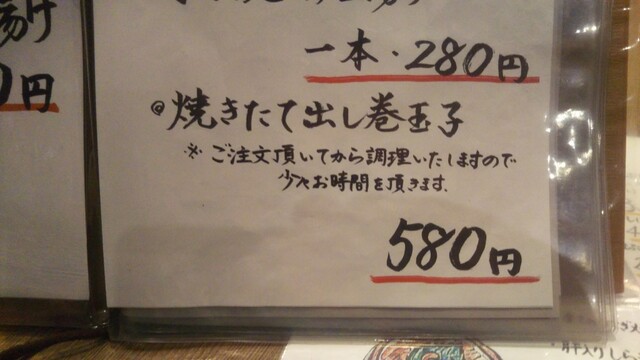 揚げ
0円
一本・280円
◎焼きたて出し巻玉子
※ご注文頂いてから調理いたしますので
少々お時間を頂きます.
580円